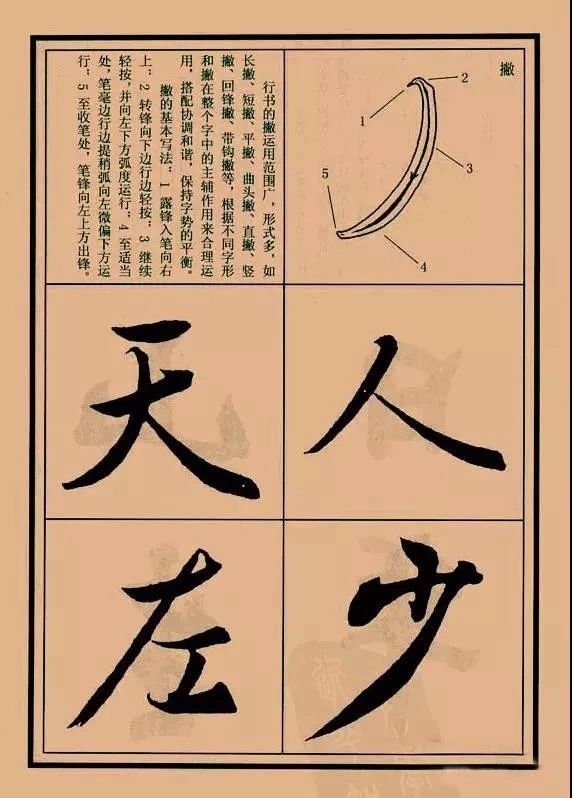 撇
1
2
3
4
5
行书的撇运用范围广，形式多，如
长撇、短撇、平撇、曲头撇、直撇、竖
撇、回锋撇、带钩撇等，根据不同字形
和撇在整个字中的主辅作用来合理运
用，搭配协调和谐，保持字势的平衡。
撇的基本写法：1 露锋入笔向右
上；2 转锋向下边行边轻按；3 继续
轻按，并向左下方弧度运行；4 至适当
处，笔毫边行边提稍弧向左微偏下方运
行；5 至收笔处，笔锋向左上方出锋。
人
天
少
左